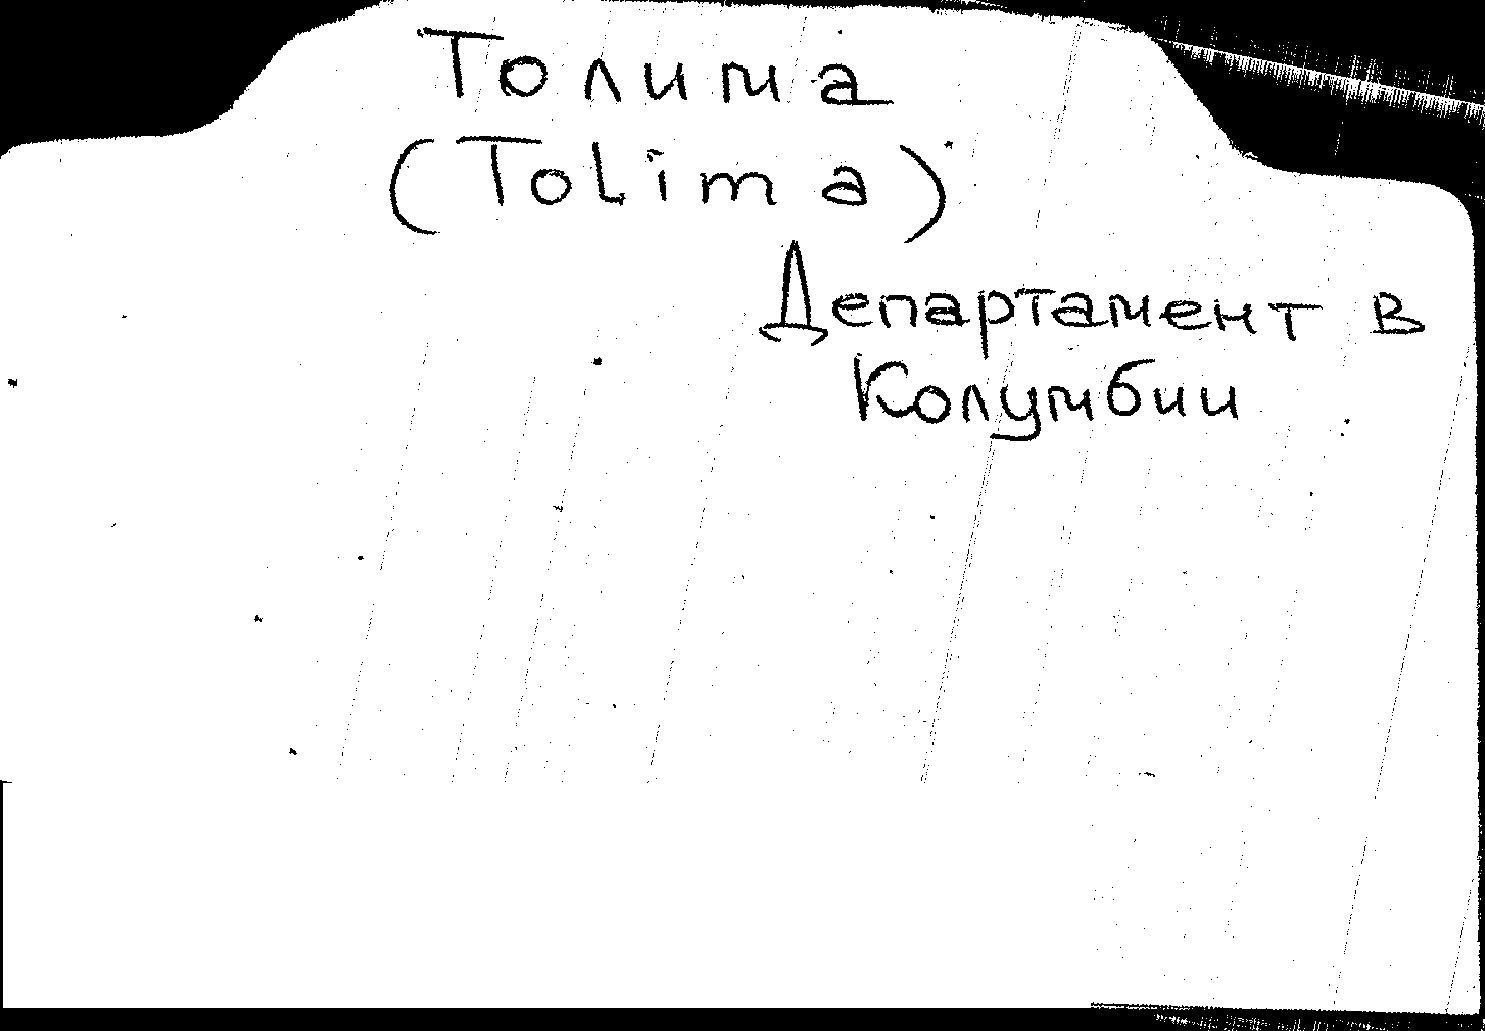 Толима
(Tolima)
Департамент в
Колумбии